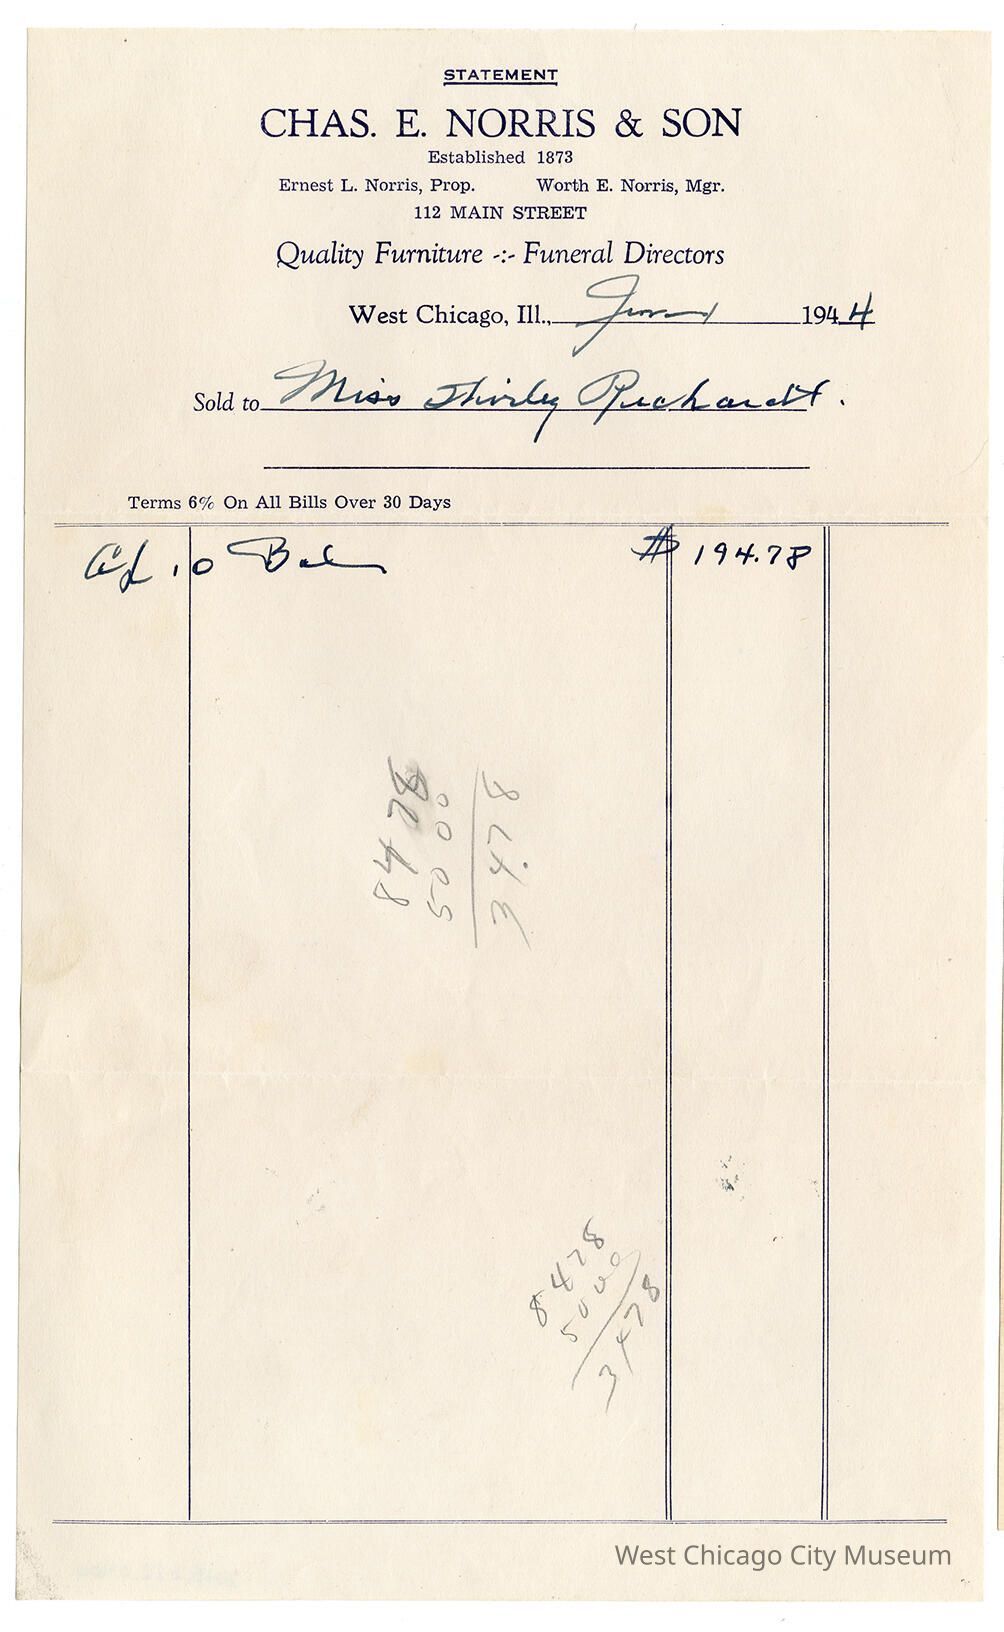 STATEMENT
CHAS. E. NORRIS & SON
Established 1873
Ernest L. Norris, Prop. Worth E. Norris, Mgr.
112 MAIN STREET
Quality Furniture -:- Funeral Directors
West Chicago, Ill., 1944
Sold to Miss Shirley
Terms 6% On All Bills Over 30 Days
Bal $ 194.78
84 78
50 00
34.78
8478
5000
3478
West Chicago City Museum